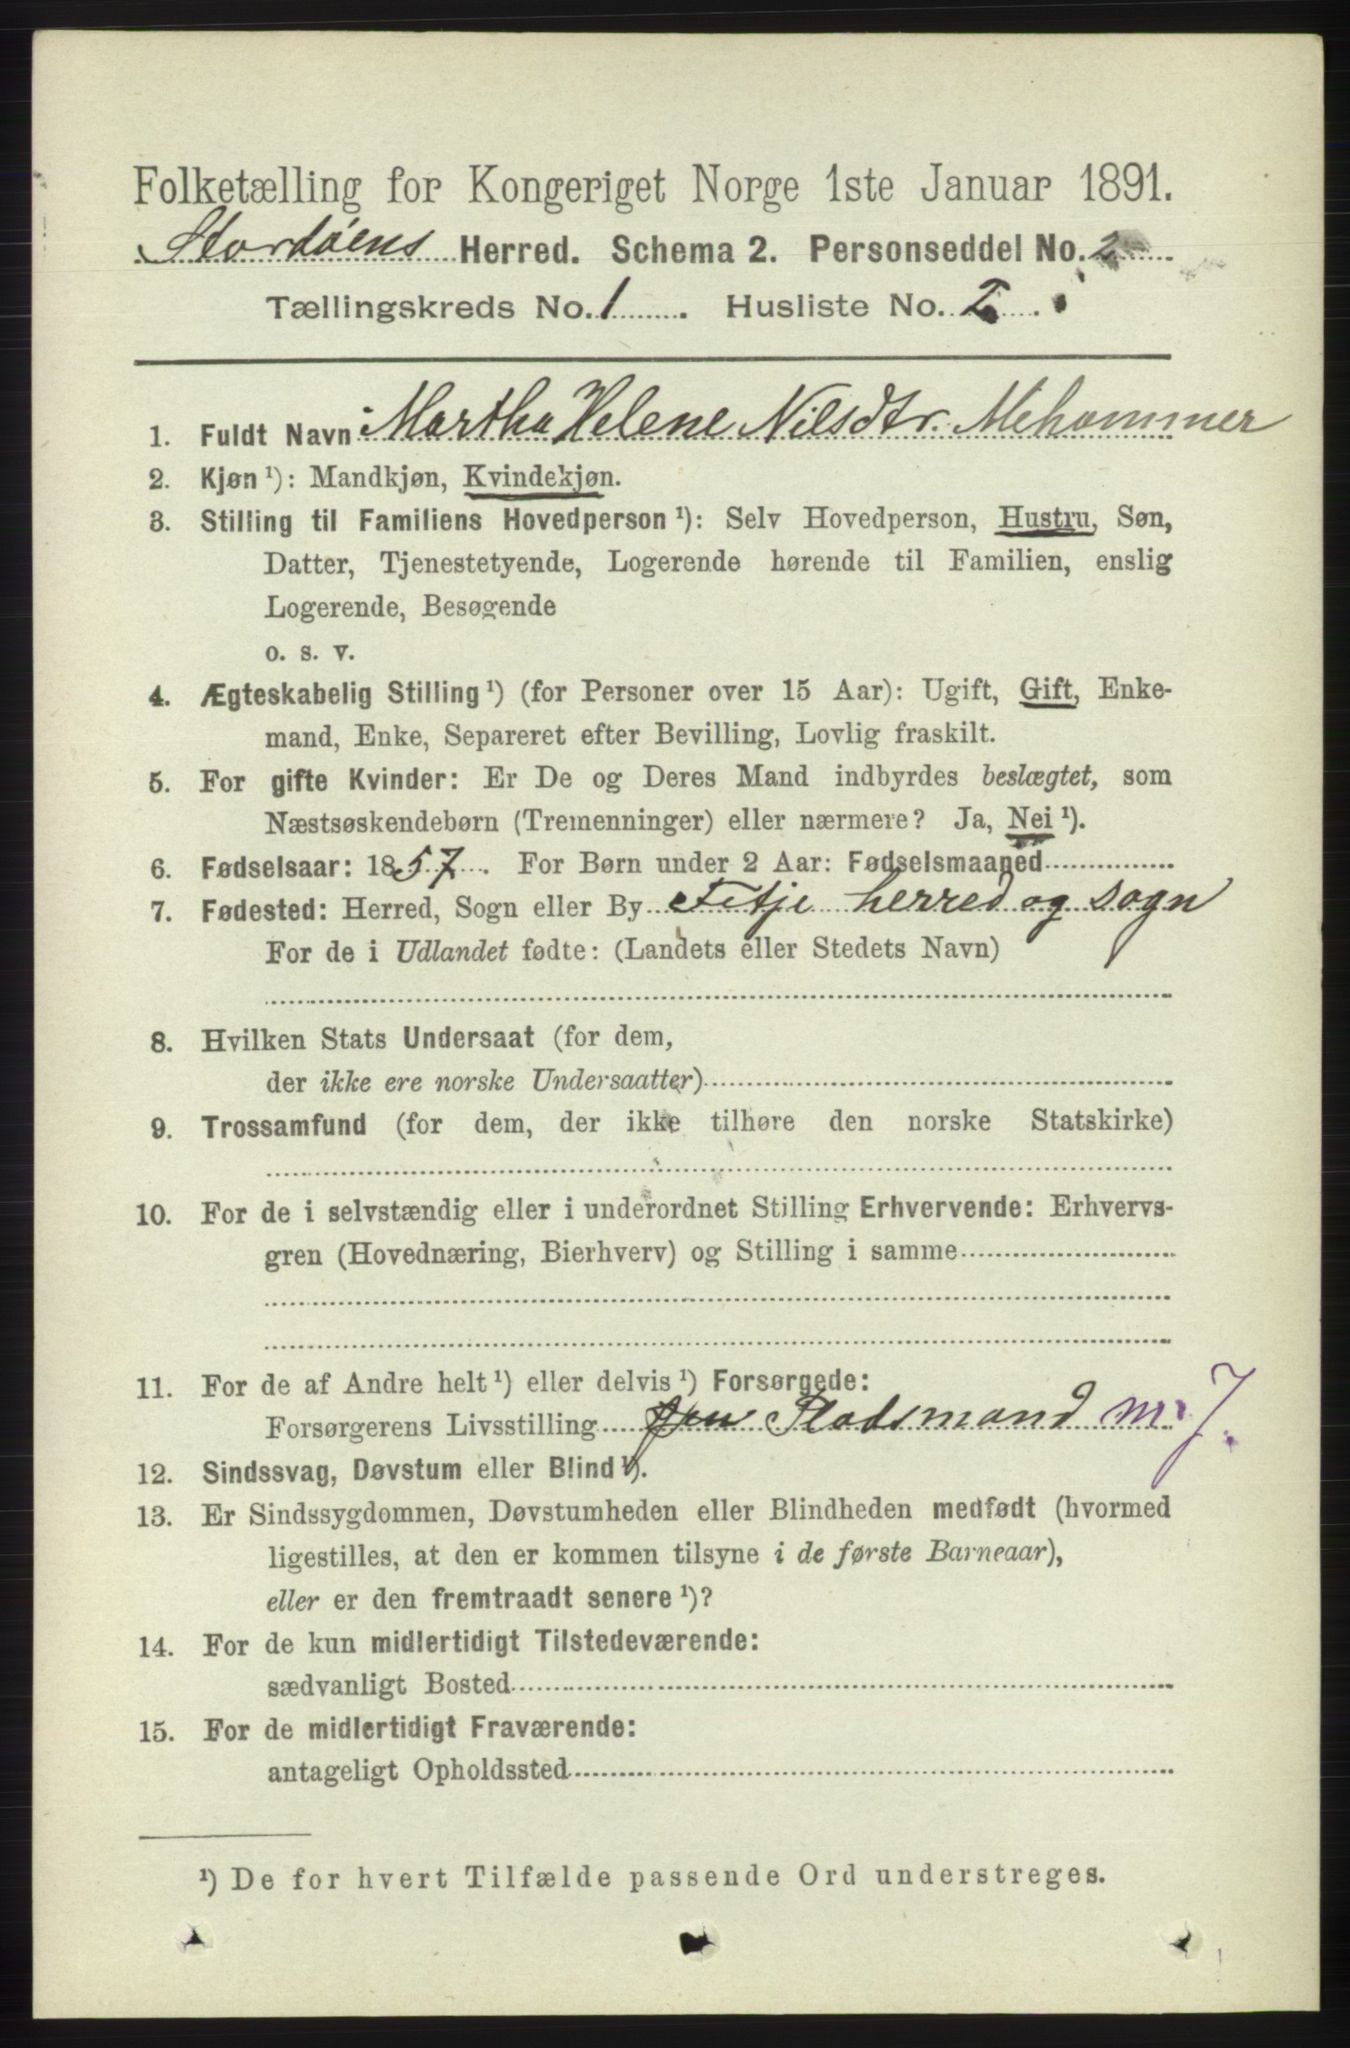 Folketælling for Kongeriget Norge 1ste Januar 1891.
Stordøens Herred. Schema 2. Personseddel No. 2
Tællingskreds No. 1. Husliste No. 2.
1. Fuldt Navn Martha Helene Nilsdtr. Mehammer
2. Kjøn ¹): Mandkjøn, Kvindekjøn.
3. Stilling til Familiens Hovedperson ¹): Selv Hovedperson, Hustru, Søn,
Datter, Tjenestetyende, Logerende hørende til Familien, enslig
Logerende, Besøgende
o. s. v.
4. Ægteskabelig Stilling ¹) (for Personer over 15 Aar): Ugift, Gift, Enke-
mand, Enke, Separeret efter Bevilling, Lovlig fraskilt.
5. For gifte Kvinder: Er De og Deres Mand indbyrdes beslægtet, som
Næstsøskendebørn (Tremenninger) eller nærmere? Ja, Nei ¹).
6. Fødselsaar: 1857. For Børn under 2 Aar: Fødselsmaaned
7. Fødested: Herred, Sogn eller By Fitje herred og sogn
For de i Udlandet fødte: (Landets eller Stedets Navn)
8. Hvilken Stats Undersaat (for dem,
der ikke ere norske Undersaatter)
9. Trossamfund (for dem, der ikke tilhøre den norske Statskirke)
10. For de i selvstændig eller i underordnet Stilling Erhvervende: Erhvervs-
gren (Hovednæring, Bierhverv) og Stilling i samme
11. For de af Andre helt ¹) eller delvis ¹) Forsørgede:
Forsørgerens Livsstilling Pladsmand m. J.
12. Sindssvag, Døvstum eller Blind ¹).
13. Er Sindssygdommen, Døvstumheden eller Blindheden medfødt (hvormed
ligestilles, at den er kommen tilsyne i de første Barneaar),
eller er den fremtraadt senere ¹)?
14. For de kun midlertidigt Tilstedeværende:
sædvanligt Bosted
15. For de midlertidigt Fraværende:
antageligt Opholdssted
¹) De for hvert Tilfælde passende Ord understreges.